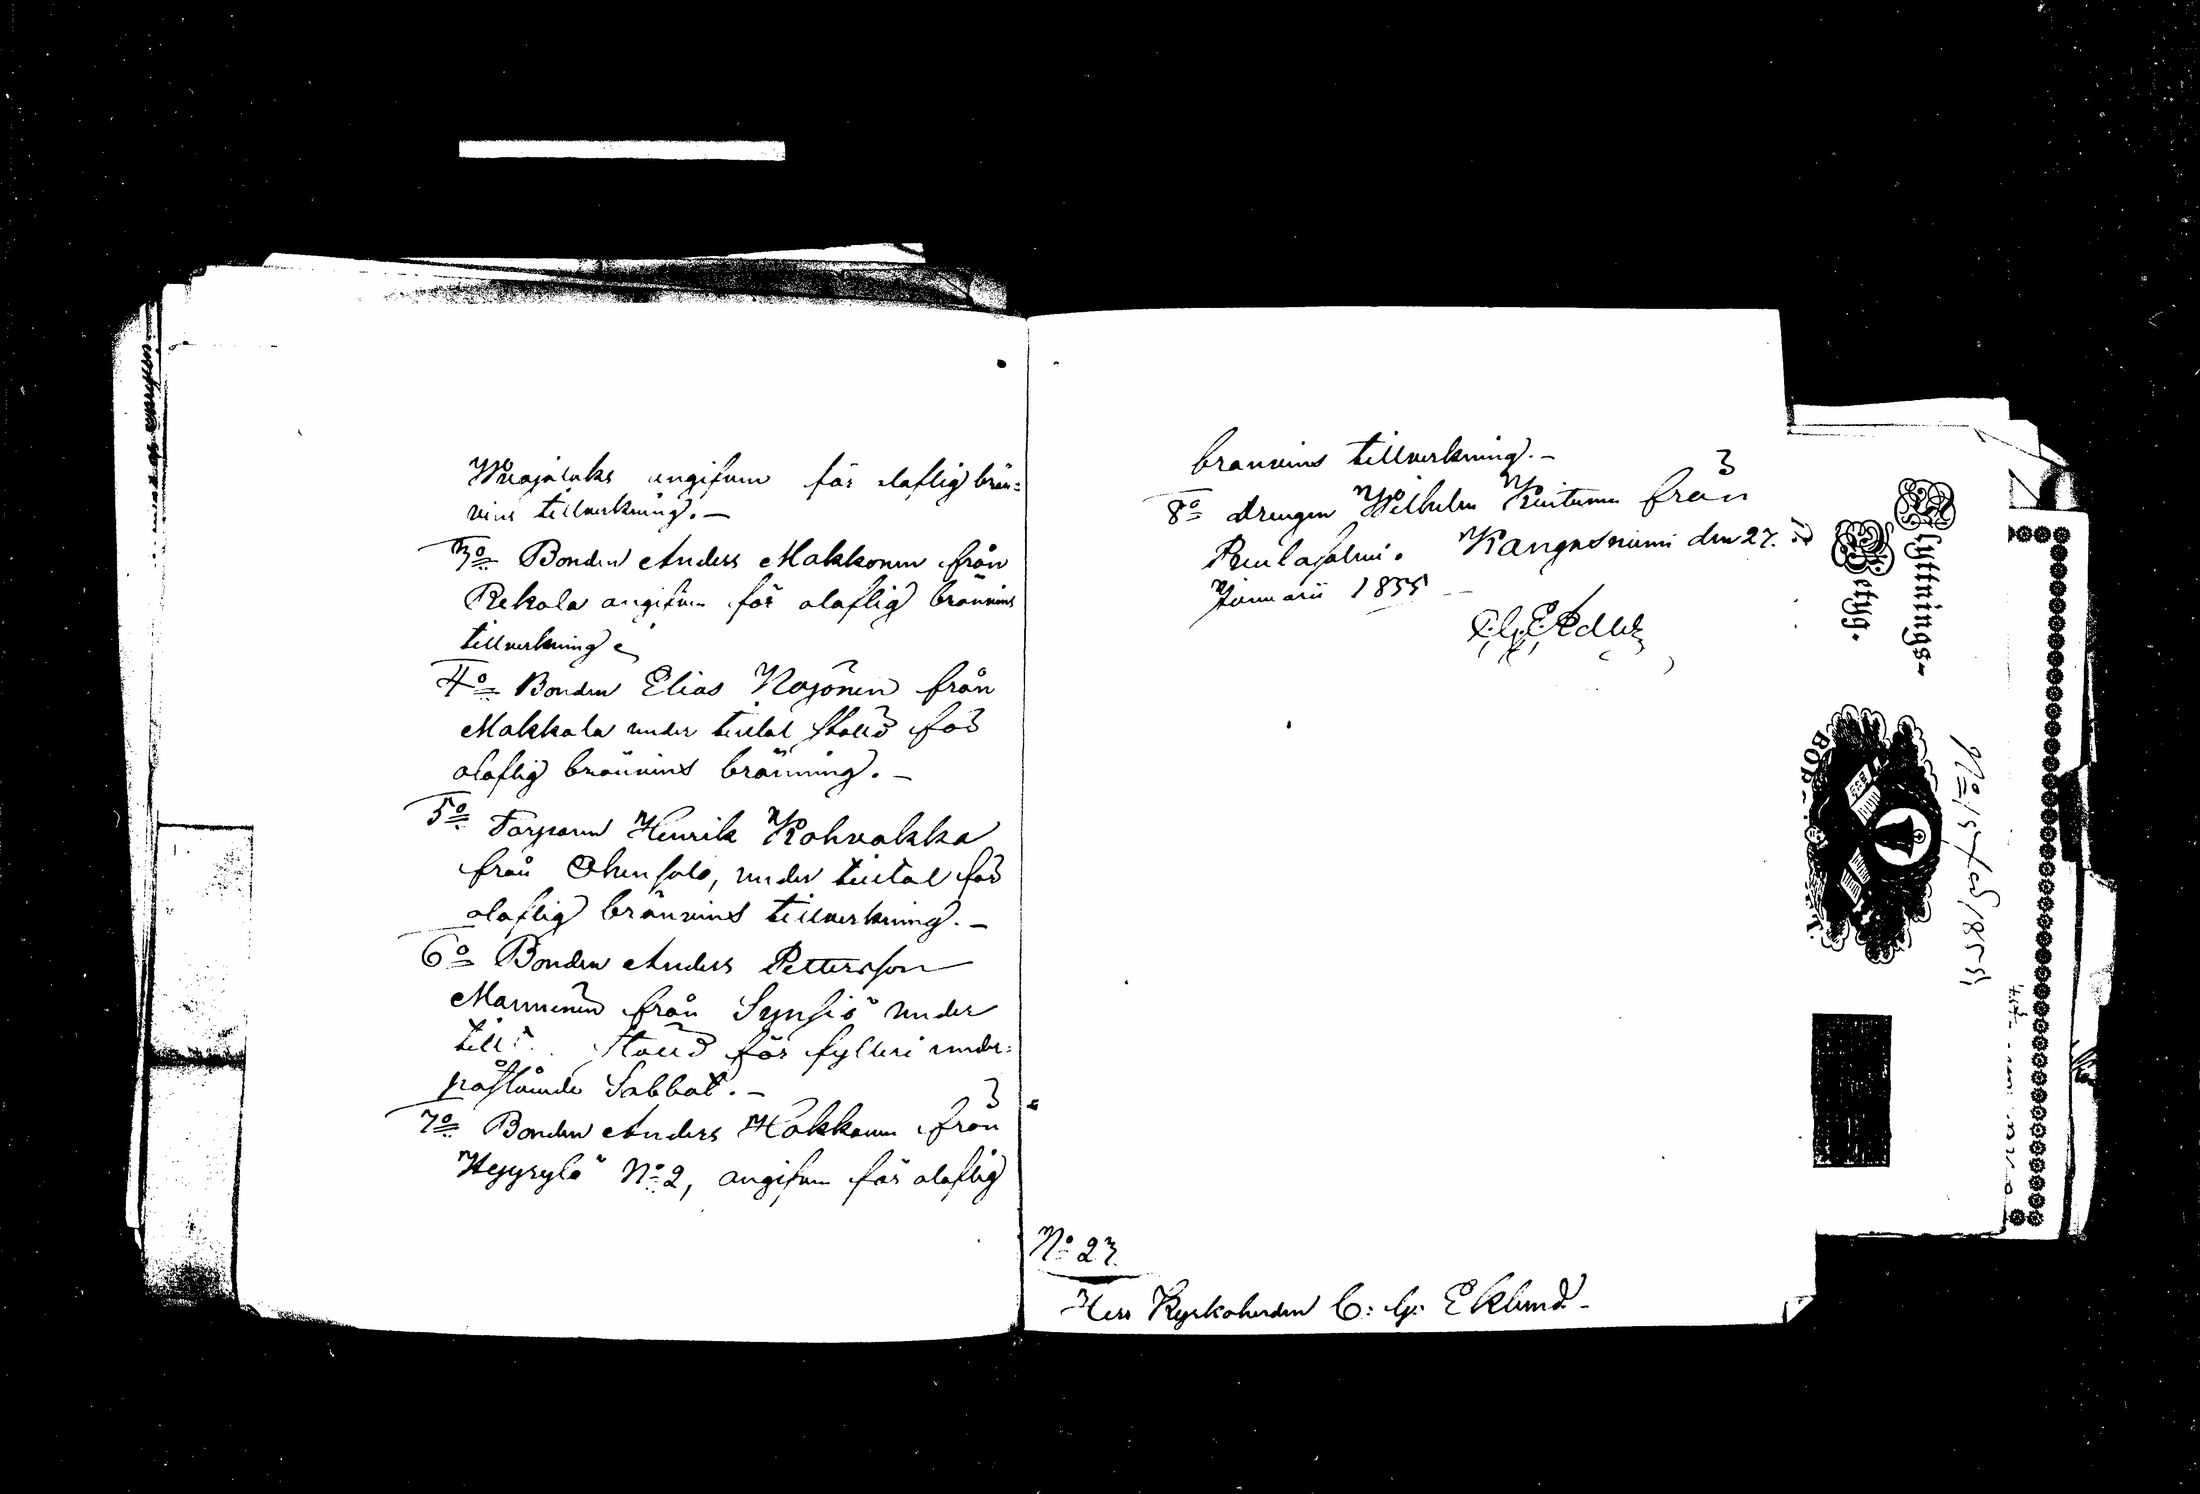 angifven för olaflig brän=
vins tillverkning. —
3o Bonden Anders Makkonen från
Rekola angifven för olaflig bränvins
tillverkning
4o Bonden Elias Noponen från
Makkola under tilltal ställd för
olaflig bränvins bränning. —
5o Torparen Henrik Kohvakka
från Ohensalo, under tilltal för
olaflig bränvins tillverkning. —
6o Bonden Anders Pettersson
Manninen från Synsiö under
ställd för fylleri under
påstående Sabbat. —
7o Bonden Anders Hokkanen från
Hyyrylä No 2, angifven för olaflig
branvins tillverkning. —
8o drengen Wilhelm från
Kangasniemi den 27.
Januarii 1855
No 27.
Herr Kyrkoherden C: G: Eklund. -
Flyttnings-
Betyg.
BOR
No 15 1855